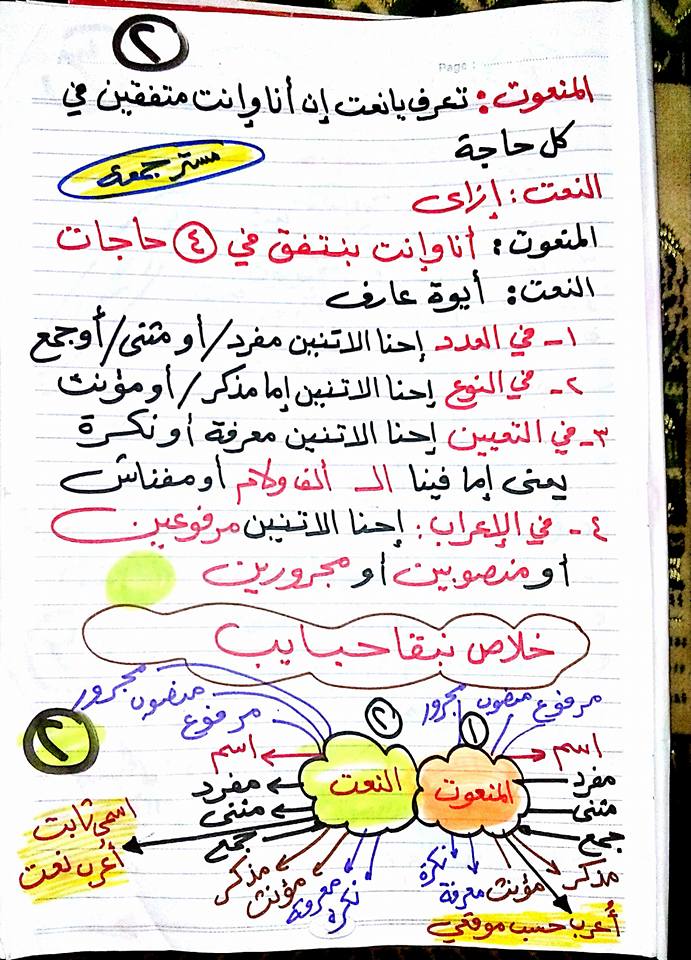 ٢
Page
المنعوت: تعرف يا نعت إن أنا وإنت متفقين في
كل حاجة
مستر جمعه
النعت: إزاى
المنعوت: أنا وإنت بنتفق في ٤ حاجات
النعت: أيوة عارف
١- في العدد إحنا الاتنين مفرد/أو مثنى/أو جمع
٢- في النوع إحنا الاتنين إما مذكر/أو مؤنث
٣- في التعيين إحنا الاتنين معرفة أو نكرة
يعنى إما فينا الـ ألف ولام أو مفناش
٤- في الإعراب: إحنا الاتنين مرفوعين
أو منصوبين أو مجرورين
خلاص نبقا حبايب
مرفوع
منصوب
مجرور
١
المنعوت
اسم
مفرد
مثنى
جمع
مذكر
مؤنث
معرفة
نكرة
أُعرب حسب موقعي
مرفوع
منصوب
مجرور
٢
النعت
اسم
مفرد
مثنى
جمع
مذكر
مؤنث
معرفة
نكرة
اسمي ثابت
أُعرب نعت
٢